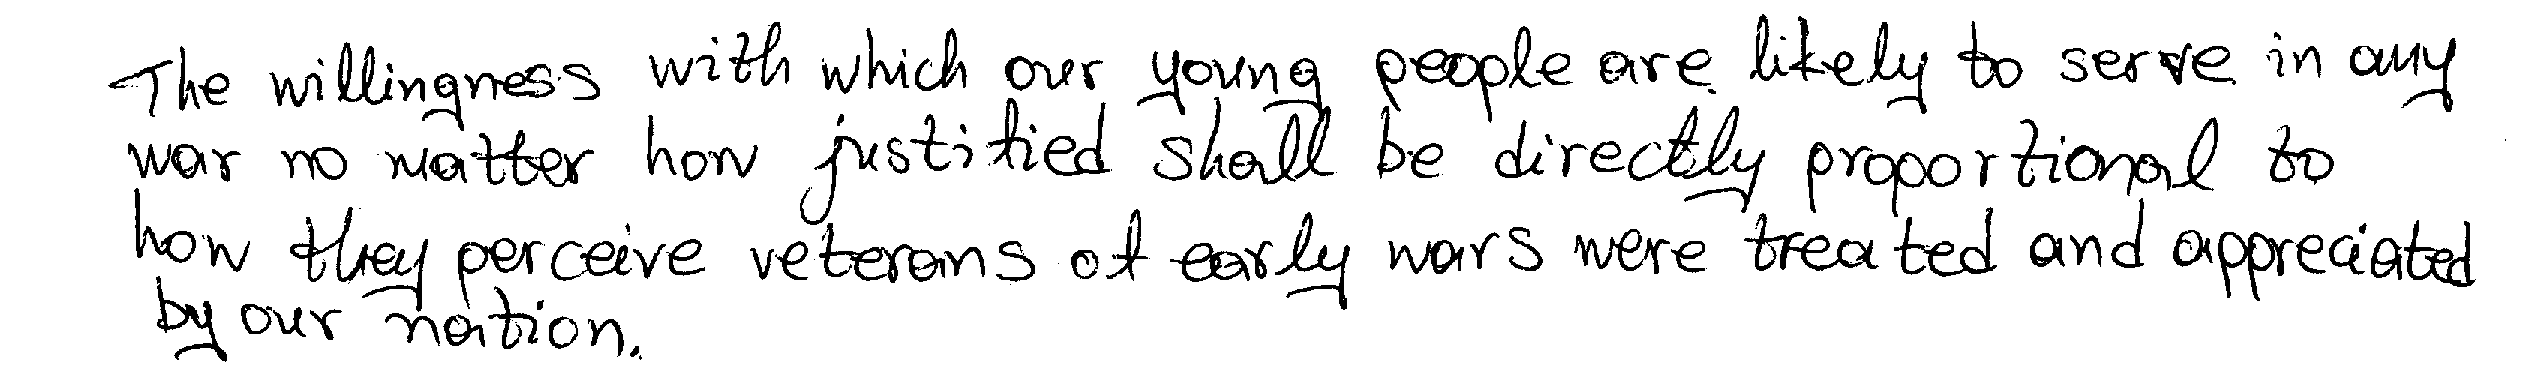 The willingness with which our young people are likely to serve in any
war no matter how justified shall be directly proportional to
how they perceive veterans of early wars were treated and appreciated
by our nation.